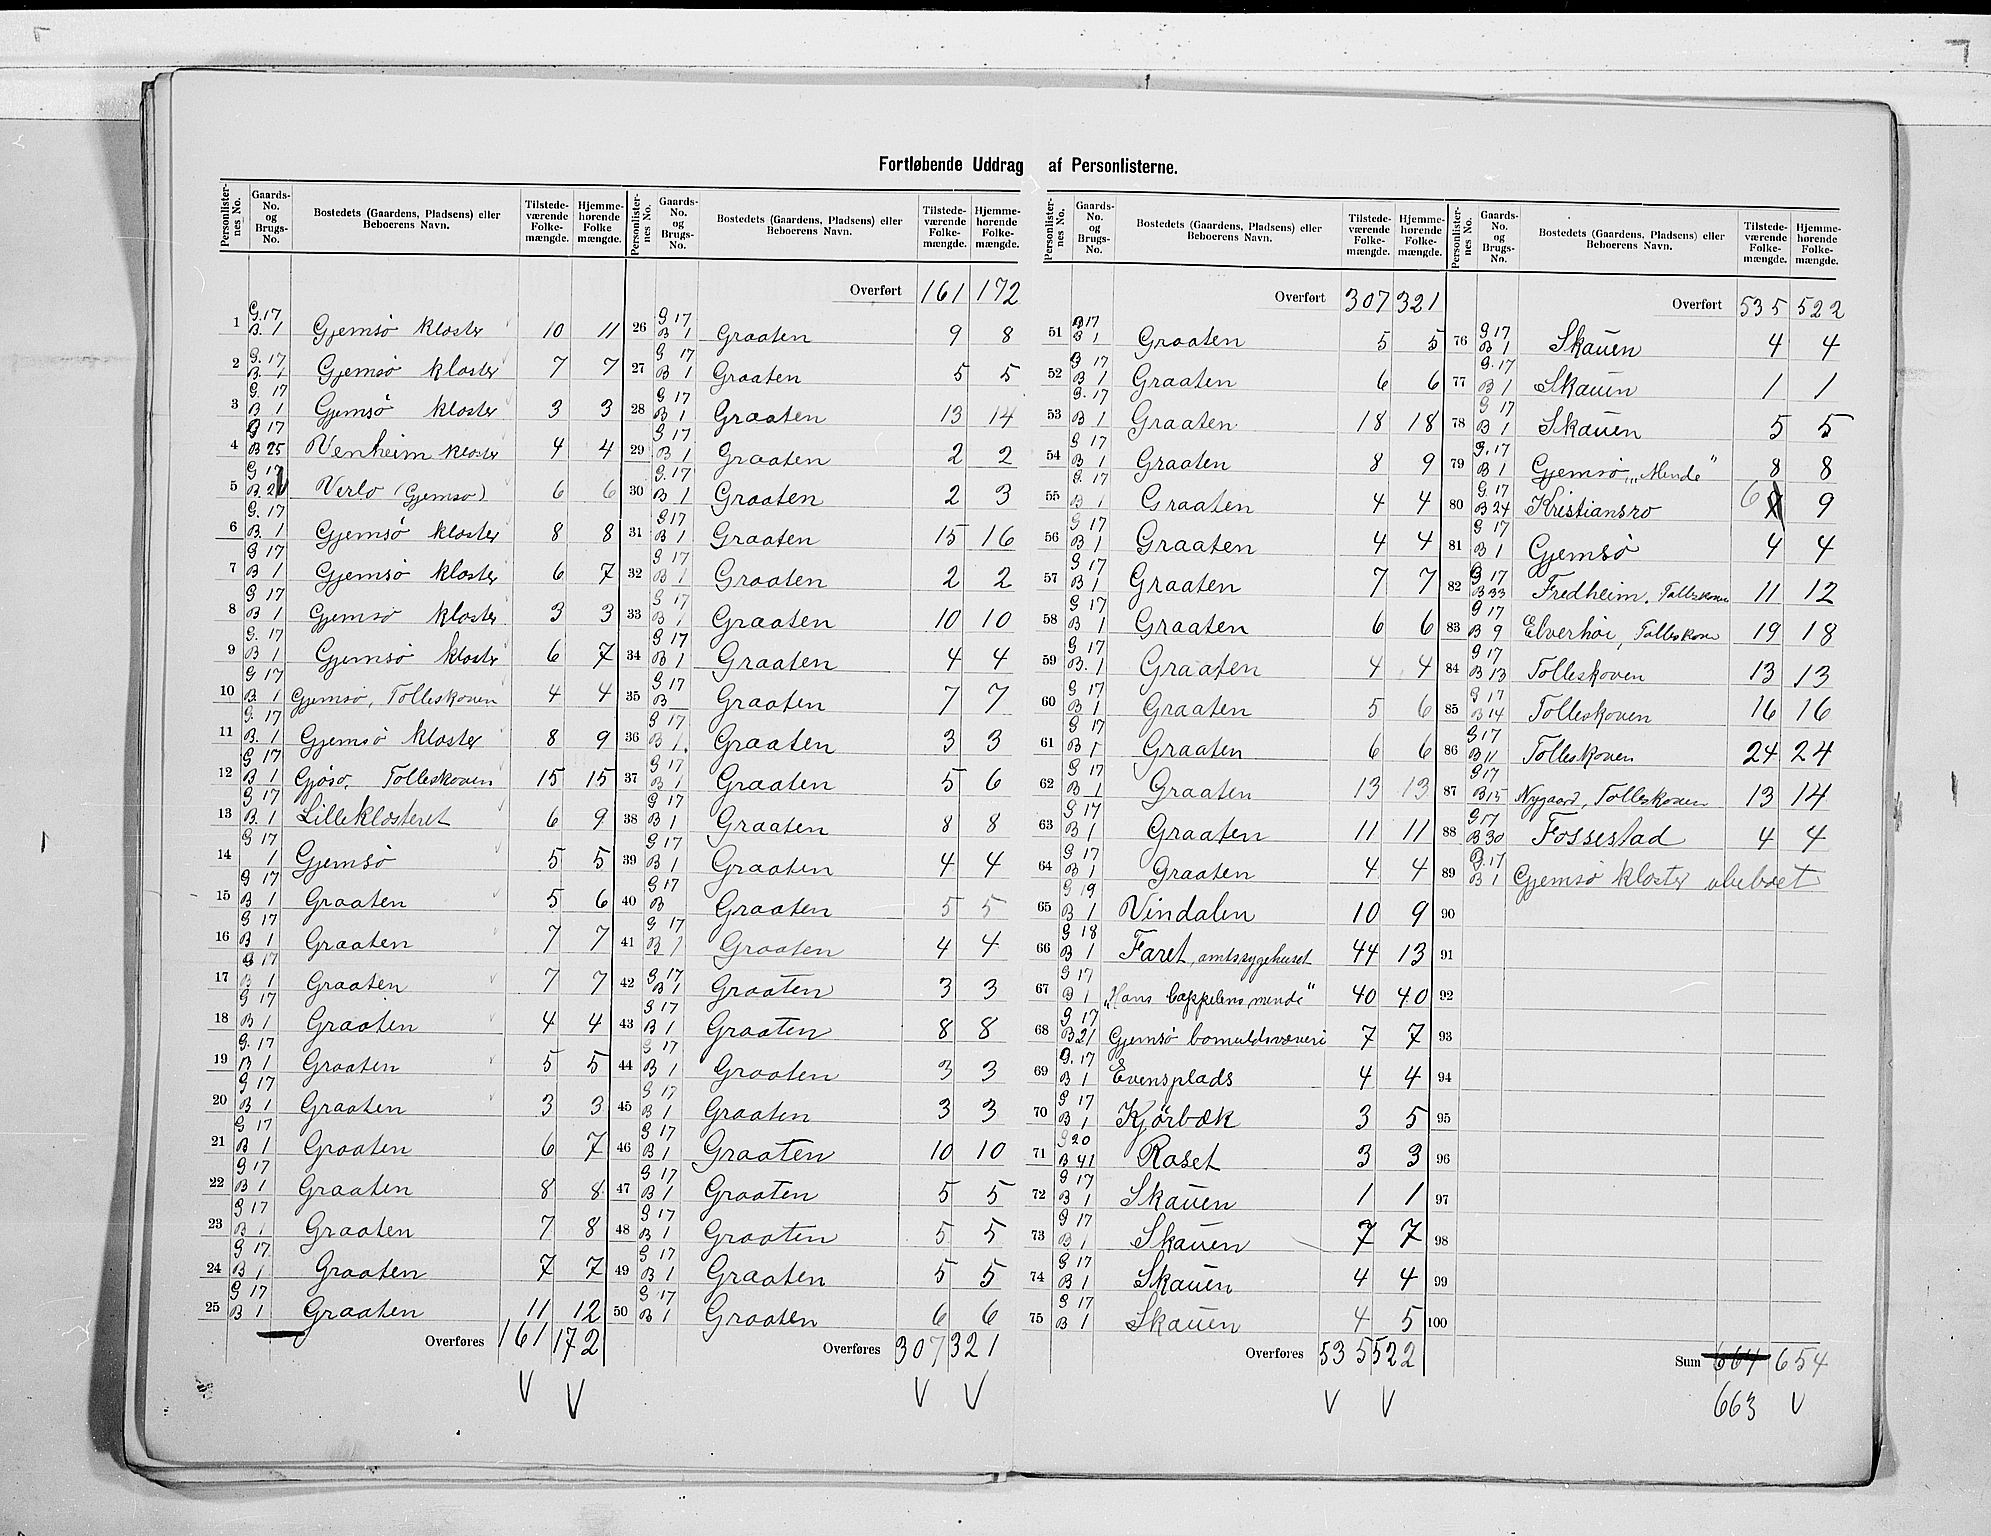 Fortløbende Uddrag af Personlisterne.
Personlister-nes No. Gaards-No. og Brugs-No. Bostedets (Gaardens, Pladsens) eller Beboerens Navn. Tilstede-værende Folke-mængde. Hjemme-hørende Folke mængde.
1 G. 17 B. 1 Gjemsø kloster 10 11
2 G. 17 B. 1 Gjemsø kloster 7 7
3 G 17 B 1 Gjemsø kloster 3 3
4 G 17 B 25 Venheim kloster 4 4
5 G 17 Verlo (Gjemsø) 6 6
6 G. 17 B. 1 Gjemsø kloster 8 8
7 G 17 B 1 Gjemsø kloster 6 7
8 G 17 B 1 Gjemsø kloster 3 3
9 G. 17 B 1 Gjemsø kloster 6 7
10 G 17 B. 1 Gjemsø, Tolleskoven 4 4
11 G. 17 B. 1 Gjemsø kloster 8 9
12 G 17 B 1 Gjøsø, Tolleskoven 15 15
13 G 17 B. 1 Lilleklosteret 6 9
14 G 17 1 Gjemsø 5 5
15 G 17 B 1 Graaten 5 6
16 G 17 B 1 Graaten 7 7
17 G 17 B 1 Graaten 7 7
18 G 17 B 1 Graaten 4 4
19 G. 17 B 1 Graaten 5 5
20 G 17 B 1 Graaten 3 3
21 G 17 B 1 Graaten 6 7
22 G 17 B 1 Graaten 8 8
23 G 17 B 1 Graaten 7 8
24 G 17 B 1 Graaten 7 7
25 G 17 B 1 Graaten 11 12
Overføres 161 172
V V
Personlister-nes No. Gaards-No. og Brugs-No. Bostedets (Gaardens, Pladsens) eller Beboerens Navn. Tilstede-værende Folke-mængde. Hjemme-hørende Folke-mængde.
Overført 161 172
26 G 17 B 1 Graaten 9 8
27 G 17 B 1 Graaten 5 5
28 G 17 B 1 Graaten 13 14
29 G 17 B 1 Graaten 2 2
30 G. 17 B 1 Graaten 2 3
31 G 17 B 1 Graaten 15 16
32 G 17 B 1 Graaten 2 2
33 G 17 B 1 Graaten 10 10
34 G 17 B 1 Graaten 4 4
35 G 17 B Graaten 7 7
36 G 17 B 1. Graaten 3 3
37 G 17 B 1 Graaten 5 6
38 G 17 B 1 Graaten 8 8
39 G 17 B 1 Graaten 4 4
40 G 17 B Graaten 5 5
41 G 17 B 1 Graaten 4 4
42 G 17 B 1 Graaten 3 3
43 G 17 B 1 Graaten 8 8
44 G 17 B 1 Graaten 3 3
45 G 17 B 1 Graaten 3 3
46 G 17 B 1 Graaten 10 10
47 G 17 B 1 Graaten 5 5
48 G 17 B 1 Graaten 5 5
49 G 17 B 1 Graaten 5 5
50 G 17 B 1 Graaten 6 6
Overføres 307 321
V V
Personlister-nes No. Gaards-No. og Brugs-No. Bostedets (Gaardens, Pladsens) eller Beboerens Navn. Tilstede-værende Folke-mængde. Hjemme-hørende Folke-mængde.
Overført 307 321
51 17 B 1 Graaten 5 5
52 G 17 B 1 Graaten 6 6
53 G. 17 B 1 Graaten 18 18
54 G 17 B 1 Graaten 8 9
55 G. 17 B 1 Graaten 4 4
56 G 17 B 1 Graaten 4 4
57 G 17 B 1 Graaten 7 7
58 G 17 B 1 Graaten 6 6
59 G 17 B. 1 Graaten 4 4
60 G 17 B 1 Graaten 5 6
61 G 17 B 1 Graaten 6 6
62 G 17 B 1 Graaten 13 13
63 G 17 B 1 Graaten 11 11
64 G 17 B 1 Graaten 4 4
65 G 19 B 1 Vindalen 10 9
66 G 18 B 1 Faret, amtssygehuset 44 13
67 G 17 B 1 „Hans Cappelens minde" 40 40
68 G 17 B 21 Gjemsø bomuldsvæveri 7 7
69 G. 17 B 1 Evensplads 4 4
70 G 17 B 1 Kjørbæk 3 5
71 G 20 B 41 Raset 3 3
72 G 17 B 1 Skauen 1 1
73 G 17 B 1 Skauen 7 7
74 G 17 B 1 Skauen 4 4
75 G 17 B 1 Skauen 4 5
Overføres 535 522
V V
Personlister-nes No. Gaards-No. og Brugs-No. Bostedets (Gaardens, Pladsens) eller Beboerens Navn. Tilstede-værende Folke-mængde. Hjemme-hørende Folke-mængde.
Overført 535 522
76 G 17 B 1 Skauen 4 4
77 G. 17 B 1 Skauen 1 1
78 G 17 B 1 Skauen 5 5
79 G. 17 B 1 Gjemsø, „Minde" 8 8
80 G. 17 B 24 Kristiansro 6 9
81 G 17 B 1 Gjemsø 4 4
82 G 17 B 33 Fredheim, Tolleskoven 11 12
83 G 17 B 9 Elverhøi, Tolleskoven 19 18
84 G 17 B 13 Tolleskoven 13 13
85 G 17 B 14 Tolleskoven 16 16
86 G 17 B 11 Tolleskoven 24 24
87 G 17 B 15 Nygaard, Tolleskoven 13 14
88 G 17 B 30 Fossestad 4 4
89 G. 17 B 1 Gjemsø kloster ubeboet
90
91
92
93
94
95
96
97
98
99
100
Sum 664 654
663 V